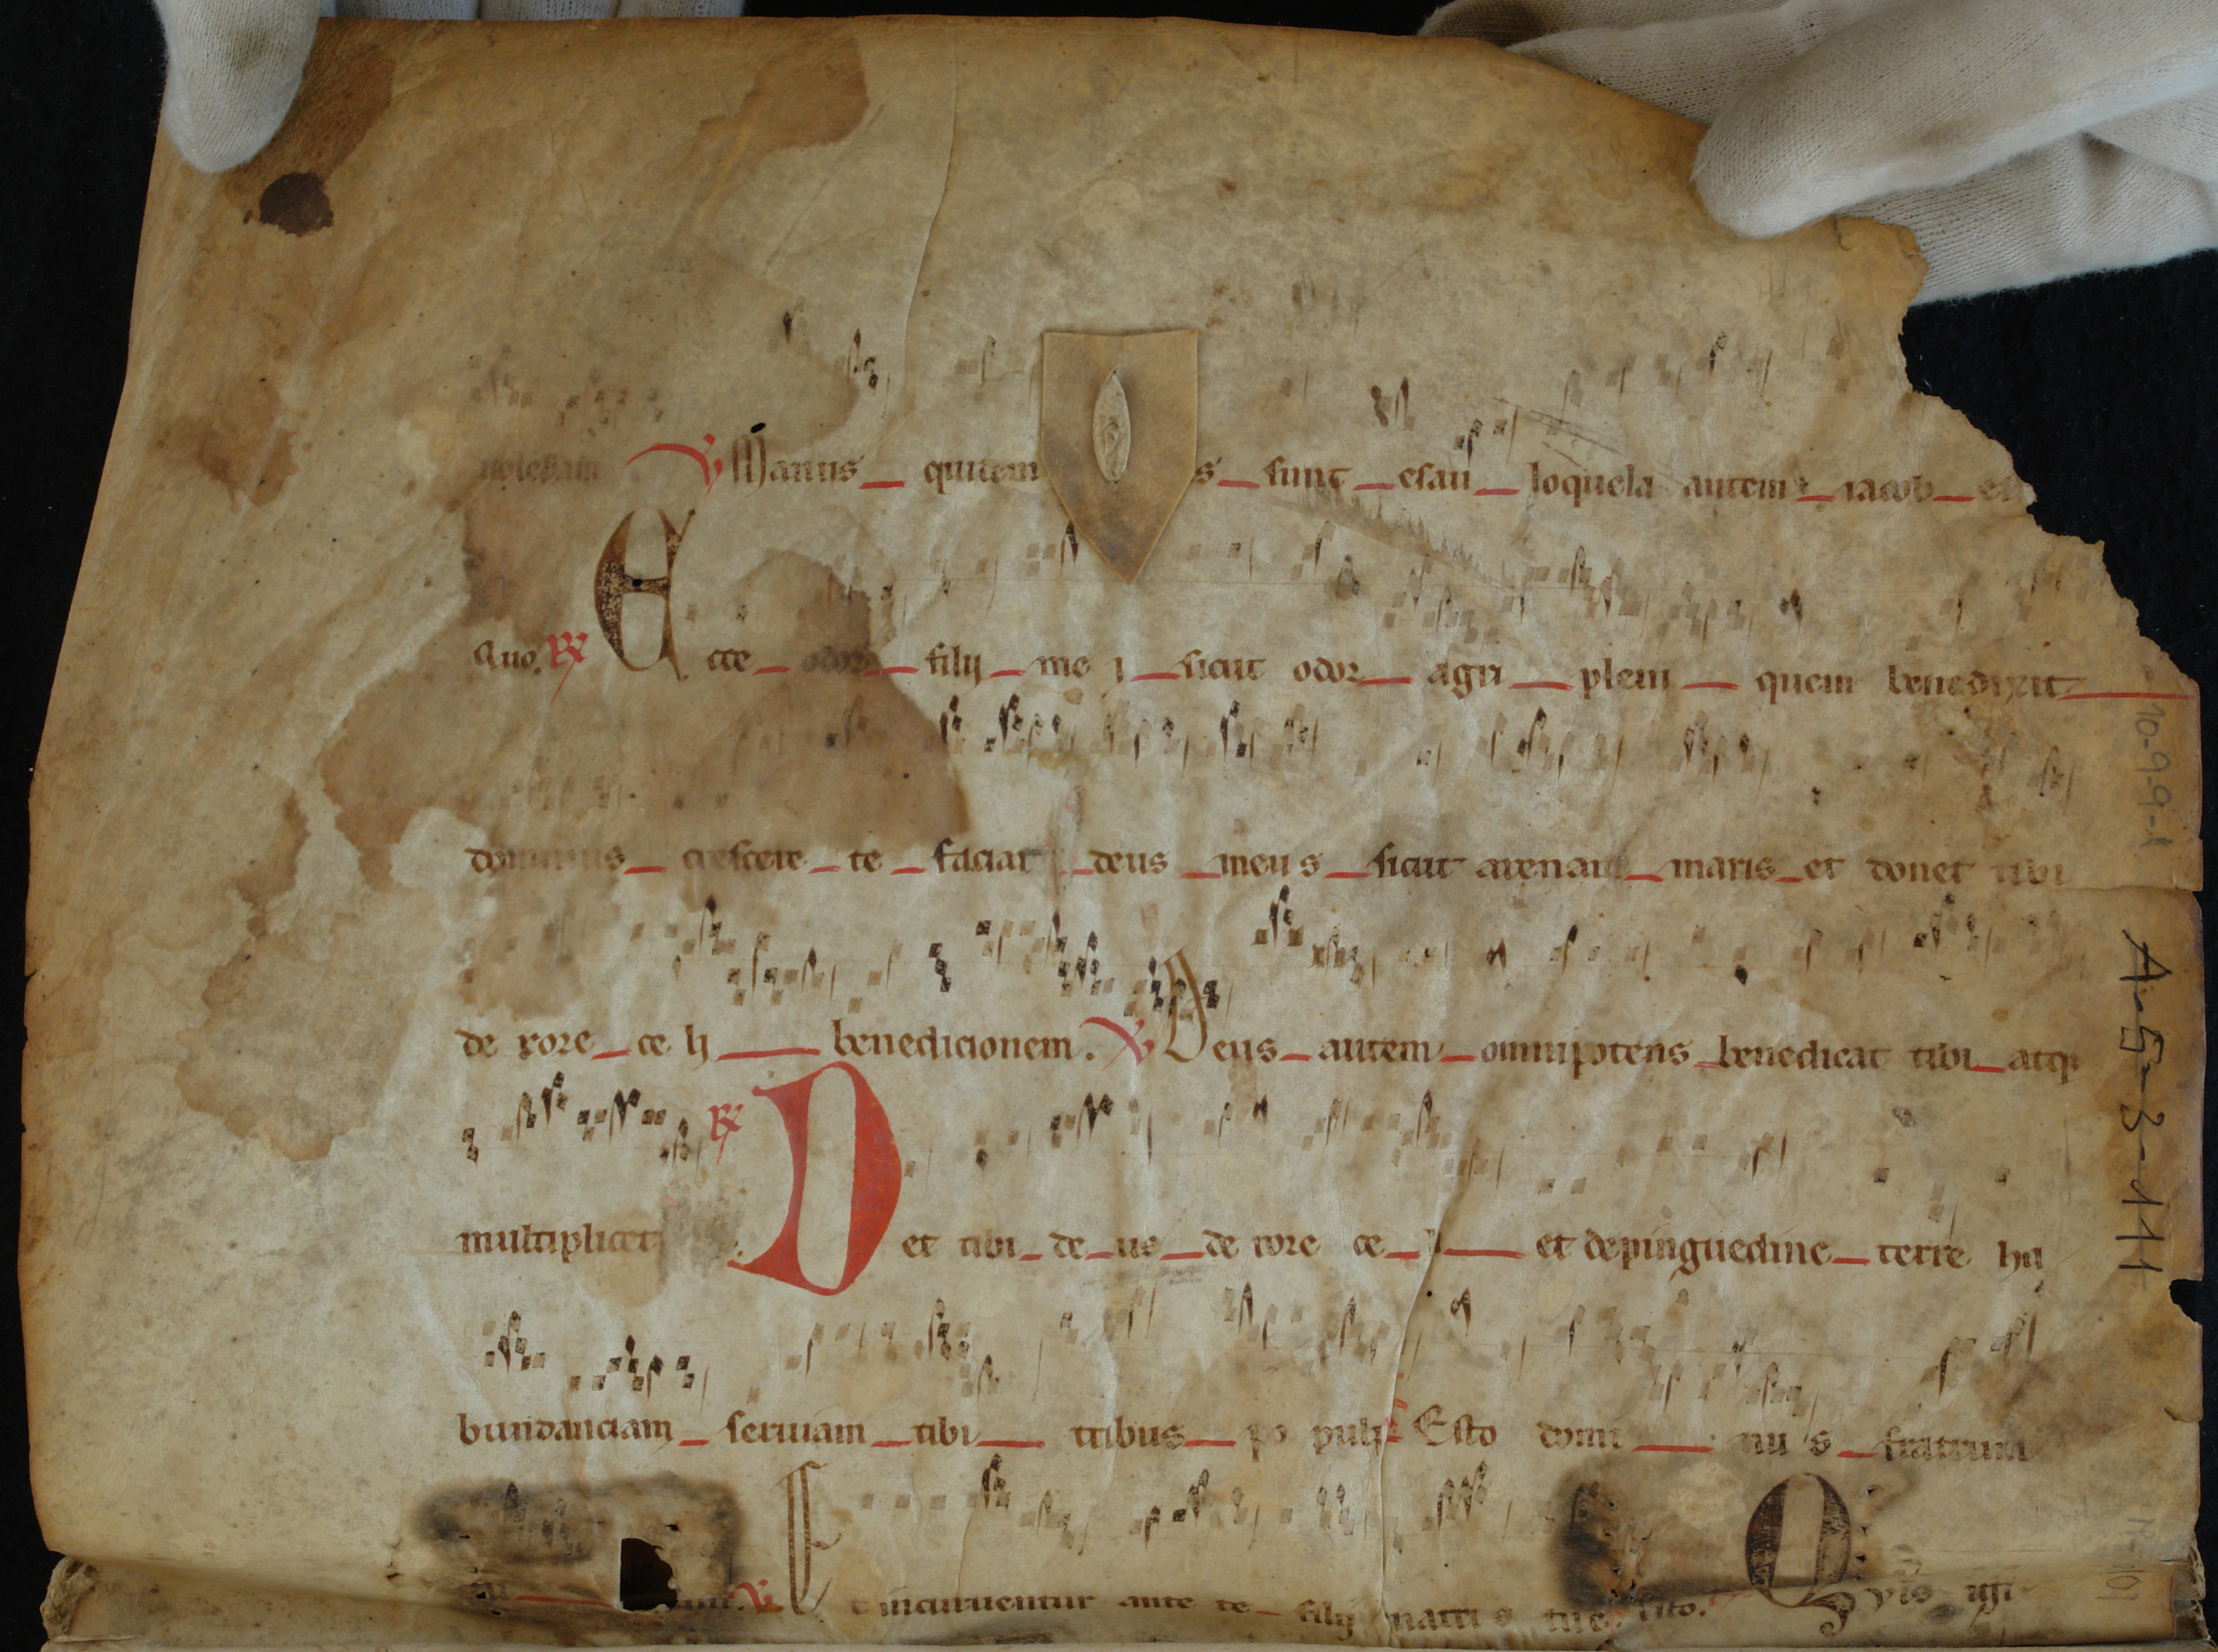 ℣ Manus quidem s sunt esau loquela autem iacob et
quo. ℟ Ecce odor filij mei sicut odor agri pleni quem benedixit
dominus crescere te faciat deus meus sicut arenam maris et donet tibi
de rore celi benedicionem. ℣ Deus autem omnipotens benedicat tibi atqꝫ
multiplicet ℟ Det tibi deus de rore celi et depinguedine terre ha
bundanciam seruiant tibi tribus populi Esto dominus fratrum
tu ℣ Et incuruentur ante te filij matris tue Esto. Qvis igi
10-9-9-1
A-5-3-111